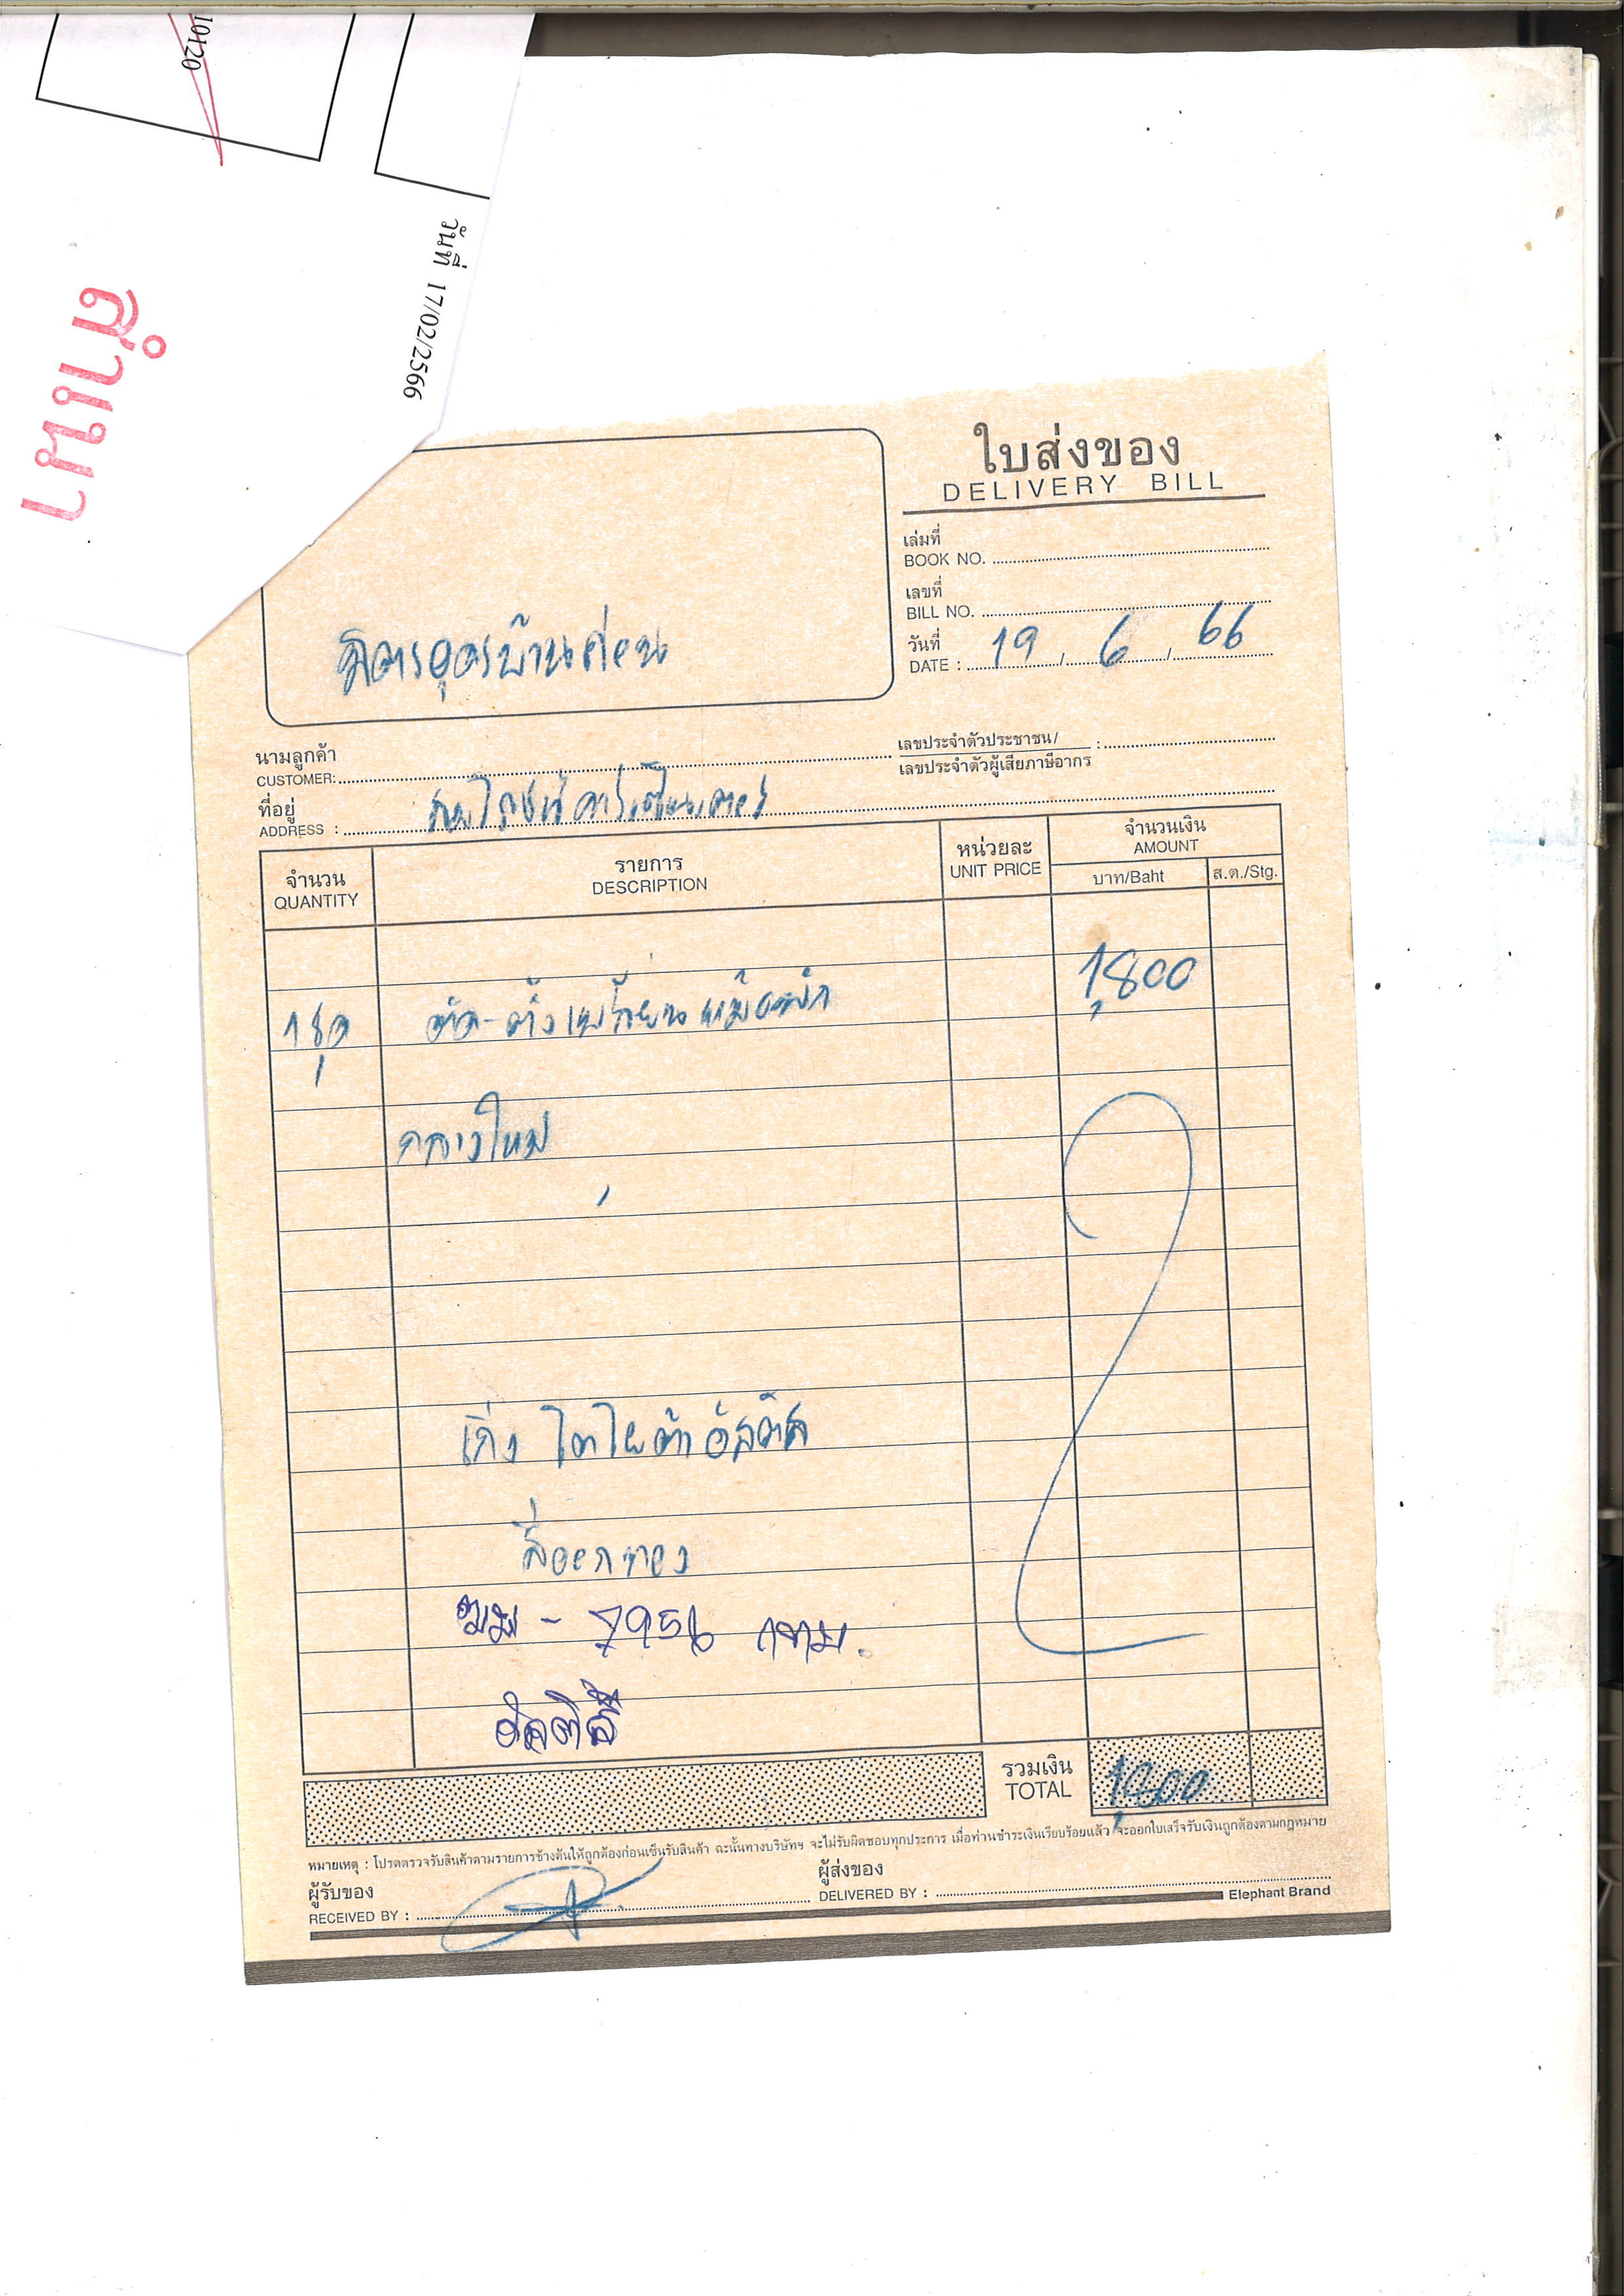 10120
วันที่ 17/02/2566
สำเนา
ใบส่งของ
DELIVERY BILL
เล่มที่
BOOK NO.
เลขที่
BILL NO.
วันที่
DATE : 19 / 6 / 66
นามลูกค้า
CUSTOMER:
เลขประจำตัวประชาชน/
เลขประจำตัวผู้เสียภาษีอากร :
ที่อยู่
ADDRESS :
จำนวน
QUANTITY
รายการ
DESCRIPTION
หน่วยละ
UNIT PRICE
จำนวนเงิน
AMOUNT
บาท/Baht
ส.ต./Stg.
1 ชุด 1,800
เก๋ง โตโยต้าอัลติส
7956 กทม.
รวมเงิน
TOTAL 1,800
หมายเหตุ : โปรดตรวจรับสินค้าตามรายการข้างต้นให้ถูกต้องก่อนเซ็นรับสินค้า ฉะนั้นทางบริษัทฯ จะไม่รับผิดชอบทุกประการ เมื่อท่านชำระเงินเรียบร้อยแล้ว จะออกใบเสร็จรับเงินถูกต้องตามกฎหมาย
ผู้รับของ
RECEIVED BY :
ผู้ส่งของ
DELIVERED BY :
Elephant Brand